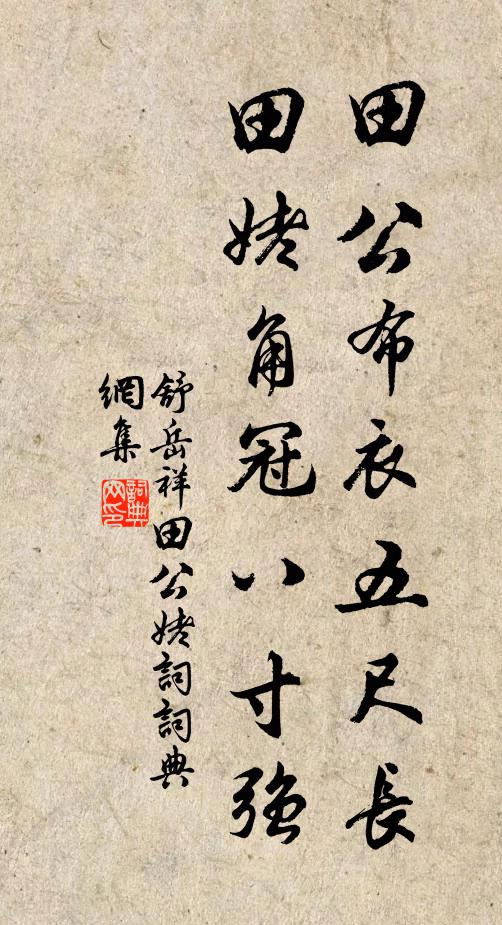 田公布衣五尺長
田姥角冠八寸強
舒岳祥田公姥詞詞典
網集
詞典
网印